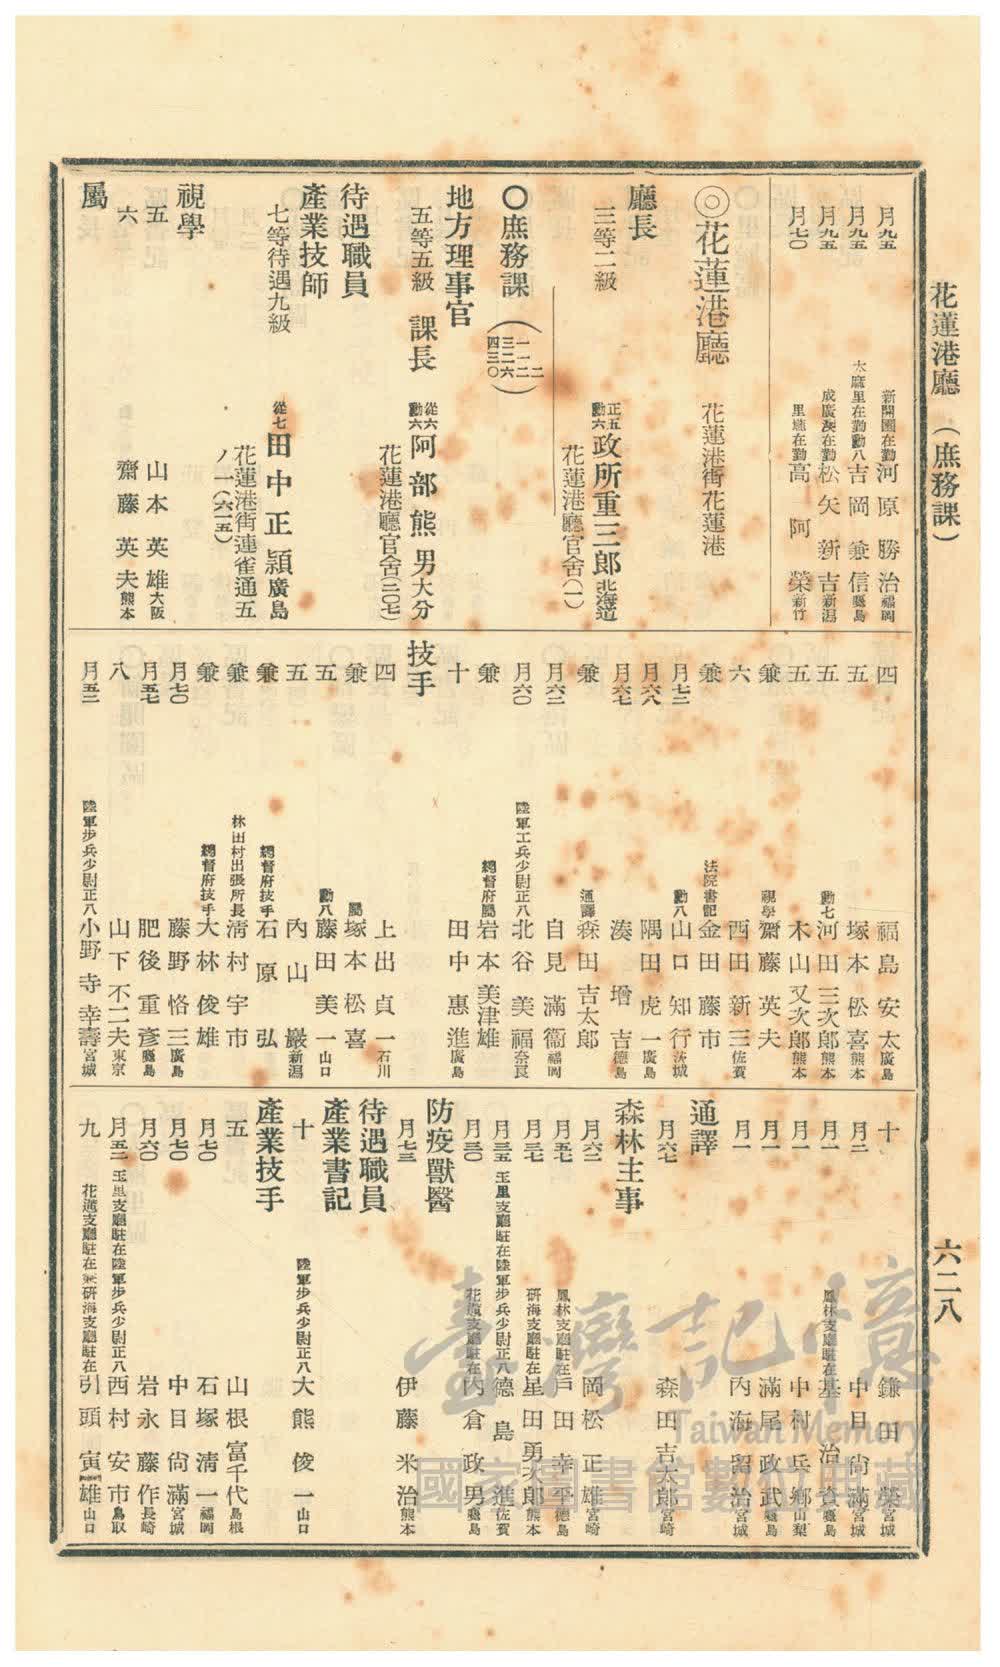 花蓮港廳（庶務課）
六二八
月九五 新開園在勤 河原勝治 福岡
月九五 太麻里在勤勳八 吉岡兼信 鹿兒島
月九五 成廣澳在勤 松矢新吉 新潟
月七〇 里壠在勤 高阿榮 新竹
◎花蓮港廳 花蓮港街花蓮港
廳長
三等二級 正五勳六 政所重三郎 北海道
花蓮港廳官舍（一）
〇庶務課（一一二二三二六四三〇）
地方理事官
五等五級 課長 從六勳六 阿部熊男 大分
花蓮港廳官舍（二〇七）
待遇職員
產業技師
七等待遇九級 從七 田中正頴 廣島
花蓮港街連雀通五
ノ一（六一五）
視學
五 山本英雄 大阪
六 齋藤英夫 熊本
屬
四 福島安太 廣島
五 塚本松喜 熊本
五 勳七 河田三次郎 熊本
五 木山又次郎 熊本
兼 視學 齋藤英夫
六 西田新三 佐賀
兼 法院書記 金田藤市
月七二 勳八 山口知行 茨城
月六八 隅田虎一 廣島
月六七 湊增吉 德島
兼 通譯 森田吉太郎
月六二 自見滿衞 福岡
月六〇 陸軍工兵少尉正八 北谷美福 奈良
兼 總督府屬 岩本美津雄
十 田中惠進 廣島
技手
四 上出貞一 石川
兼 屬 塚本松喜
五 勳八 藤田美一 山口
五 內山巖 新潟
兼 總督府技手 石原弘
兼 林田村出張所長 淸村宇市
兼 總督府技手 大林俊雄
月七〇 藤野恪三 廣島
月五七 肥後重彥 鹿兒島
八 山下不二夫 東京
月五二 陸軍步兵少尉正八 小野寺幸壽 宮城
十 鎌田榮 宮城
月二 中目尙滿 宮城
月一 鳳林支廳駐在 基治資 鹿兒島
月一 中村兵鄕 山梨
月一 滿尾政武 鹿兒島
月一 內海留治 宮城
通譯
月六七 森田吉太郎 宮崎
森林主事
月六二 岡松正雄 宮崎
月五七 鳳林支廳駐在 戶田幸平 德島
月三七 硏海支廳駐在 星田勇次郎 熊本
月三五 玉里支廳駐在陸軍步兵少尉正八 德島進 佐賀
月三〇 花蓮支廳駐在 內倉政男 鹿兒島
防疫獸醫
月七三 伊藤米治 熊本
待遇職員
產業書記
十 陸軍步兵少尉正八 大熊俊一 山口
產業技手
五 山根富千代 島根
月七〇 石塚淸一 福岡
月七〇 中目尙滿 宮城
月六〇 岩永藤作 長崎
月五二 玉里支廳駐在陸軍步兵少尉正八 西村安市 鳥取
九 花蓮支廳駐在兼硏海支廳駐在 引頭寅雄 山口
臺灣記憶
Taiwan Memory
國家圖書館數位典藏